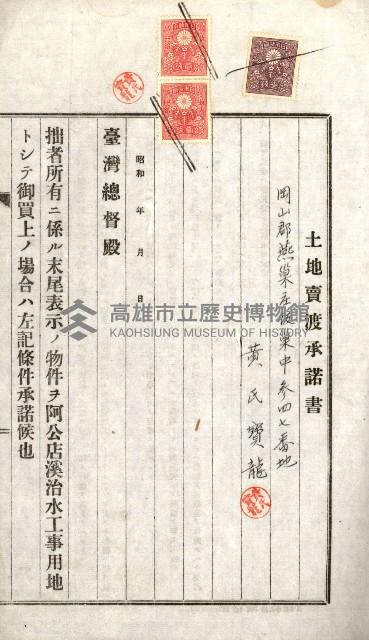 土地賣渡承諾書
岡山郡燕巢庄燕巢中參四七番地
黃氏寶龍
臺灣總督殿
昭和 年 月 日
拙者所有ニ係ル末尾表示ノ物件ヲ阿公店溪治水工事用地
トシテ御買上ノ場合ハ左記條件承諾候也
高雄市立歷史博物館
KAOHSIUNG MUSEUM OF HISTORY